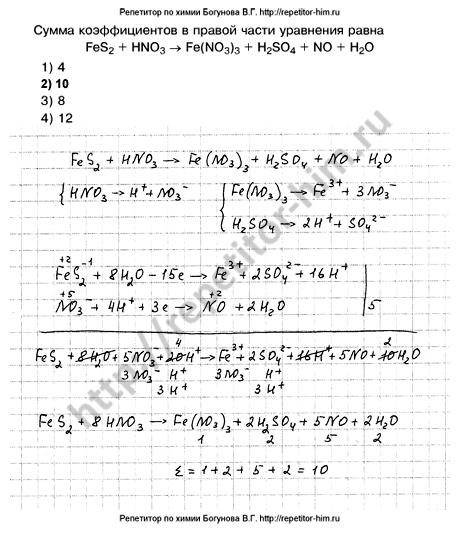 Репетитор по химии Богунова В.Г. http://repetitor-him.ru
Сумма коэффициентов в правой части уравнения равна
FeS₂ + HNO₃ → Fe(NO₃)₃ + H₂SO₄ + NO + H₂O
1) 4
2) 10
3) 8
4) 12
FeS₂ + HNO₃ → Fe(NO₃)₃ + H₂SO₄ + NO + H₂O
{ HNO₃ → H⁺ + NO₃⁻ { Fe(NO₃)₃ → Fe³⁺ + 3NO₃⁻
H₂SO₄ → 2H⁺ + SO₄²⁻
+2 -1
FeS₂ + 8H₂O - 15e → Fe³⁺ + 2SO₄²⁻ + 16H⁺
+5 +2
NO₃⁻ + 4H⁺ + 3e → NO + 2H₂O | 5
4 2
FeS₂ + 8H₂O + 5NO₃⁻ + 20H⁺ → Fe³⁺ + 2SO₄²⁻ + 16H⁺ + 5NO + 10H₂O
3NO₃⁻ H⁺ 3NO₃⁻ H⁺
3H⁺ 3H⁺
FeS₂ + 8HNO₃ → Fe(NO₃)₃ + 2H₂SO₄ + 5NO + 2H₂O
1 2 5 2
Σ = 1 + 2 + 5 + 2 = 10
http://repetitor-him.ru
Репетитор по химии Богунова В.Г. http://repetitor-him.ru